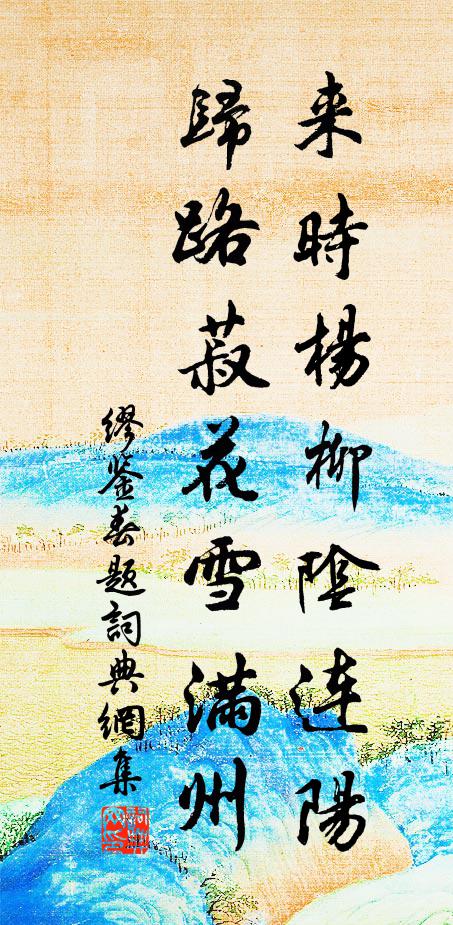 来時楊柳陰連陽
歸路菽花雪滿州
缪鉴春題詞典網集